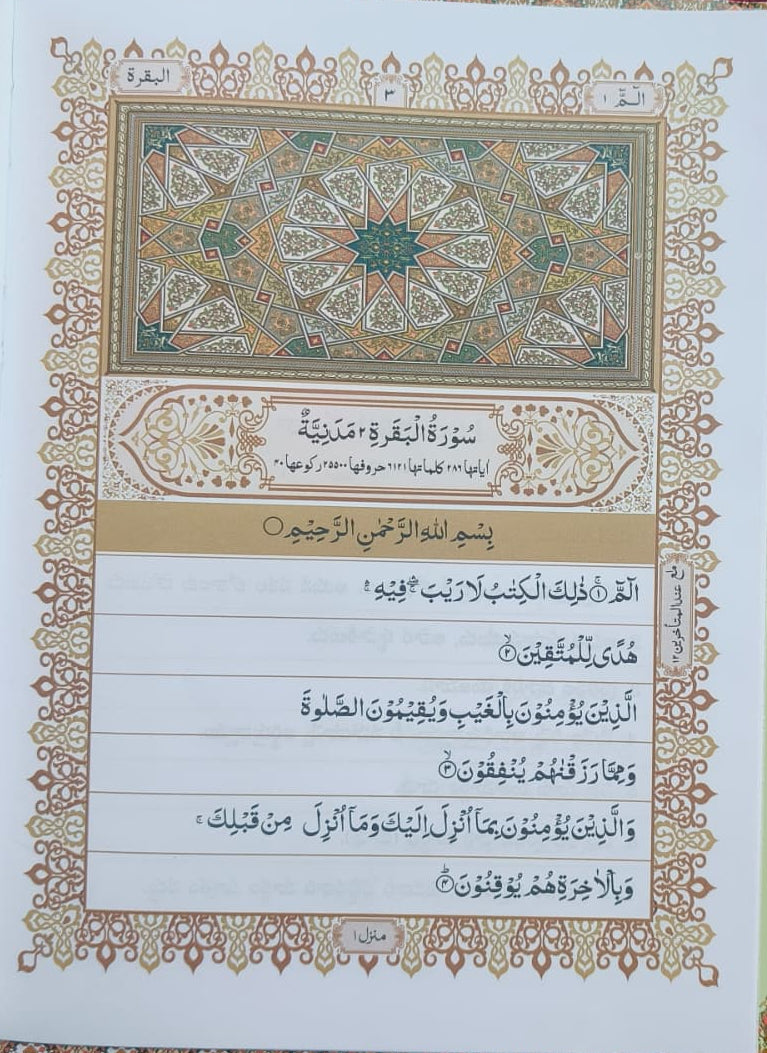 الٓمّٓ ١
٣
البقرة
سُوْرَةُ الْبَقَرَةِ ٢ مَدَنِيَّةٌ
اٰياتها ٢٨٦ كلماتها ٦١٢١ حروفها ٢٥٥٠٠ ركوعها ٤٠
بِسْمِ اللّٰهِ الرَّحْمٰنِ الرَّحِيْمِ ○
الٓمّٓ ۚ ١ ذٰلِكَ الْكِتٰبُ لَا رَيْبَ ۛ فِيْهِ ۛ
هُدًى لِّلْمُتَّقِيْنَ ۙ ٢
الَّذِيْنَ يُؤْمِنُوْنَ بِالْغَيْبِ وَيُقِيْمُوْنَ الصَّلٰوةَ
وَمِمَّا رَزَقْنٰهُمْ يُنْفِقُوْنَ ۙ ٣
وَالَّذِيْنَ يُؤْمِنُوْنَ بِمَآ اُنْزِلَ اِلَيْكَ وَمَآ اُنْزِلَ مِنْ قَبْلِكَ ۚ
وَبِالْاٰخِرَةِ هُمْ يُوْقِنُوْنَ ؕ ٤
مع عند المتأخرين ١٢
منزل ١